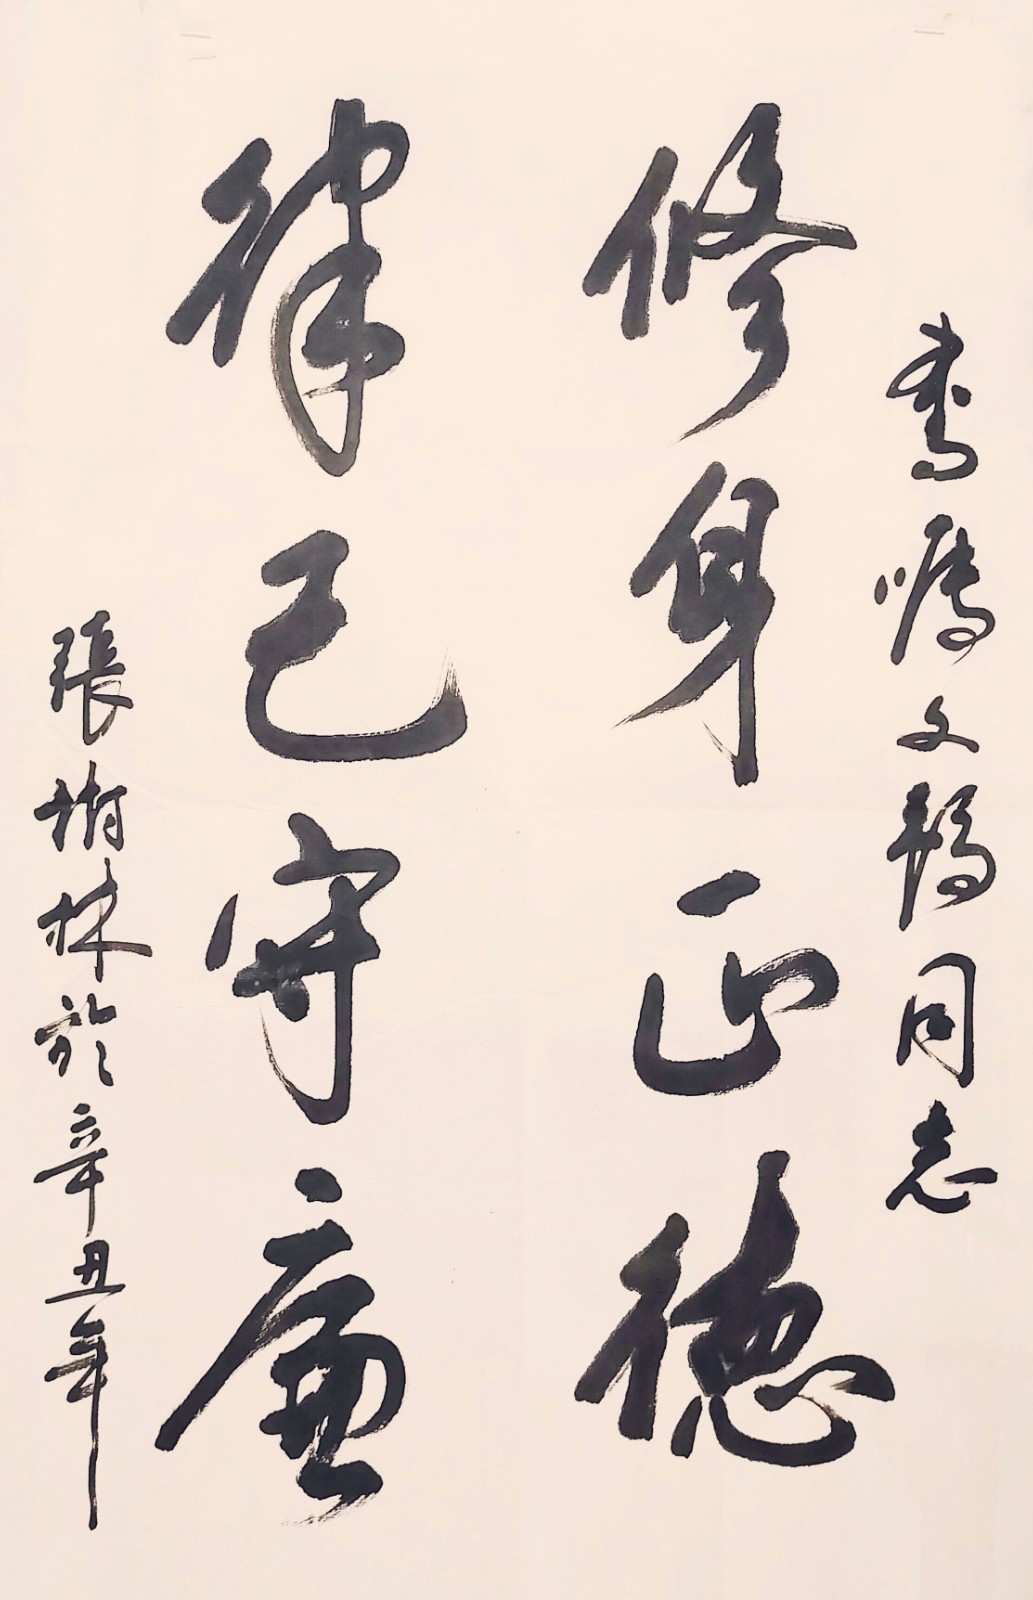 嘱文同志
修身正德
律己守廉
張樹林於辛丑年